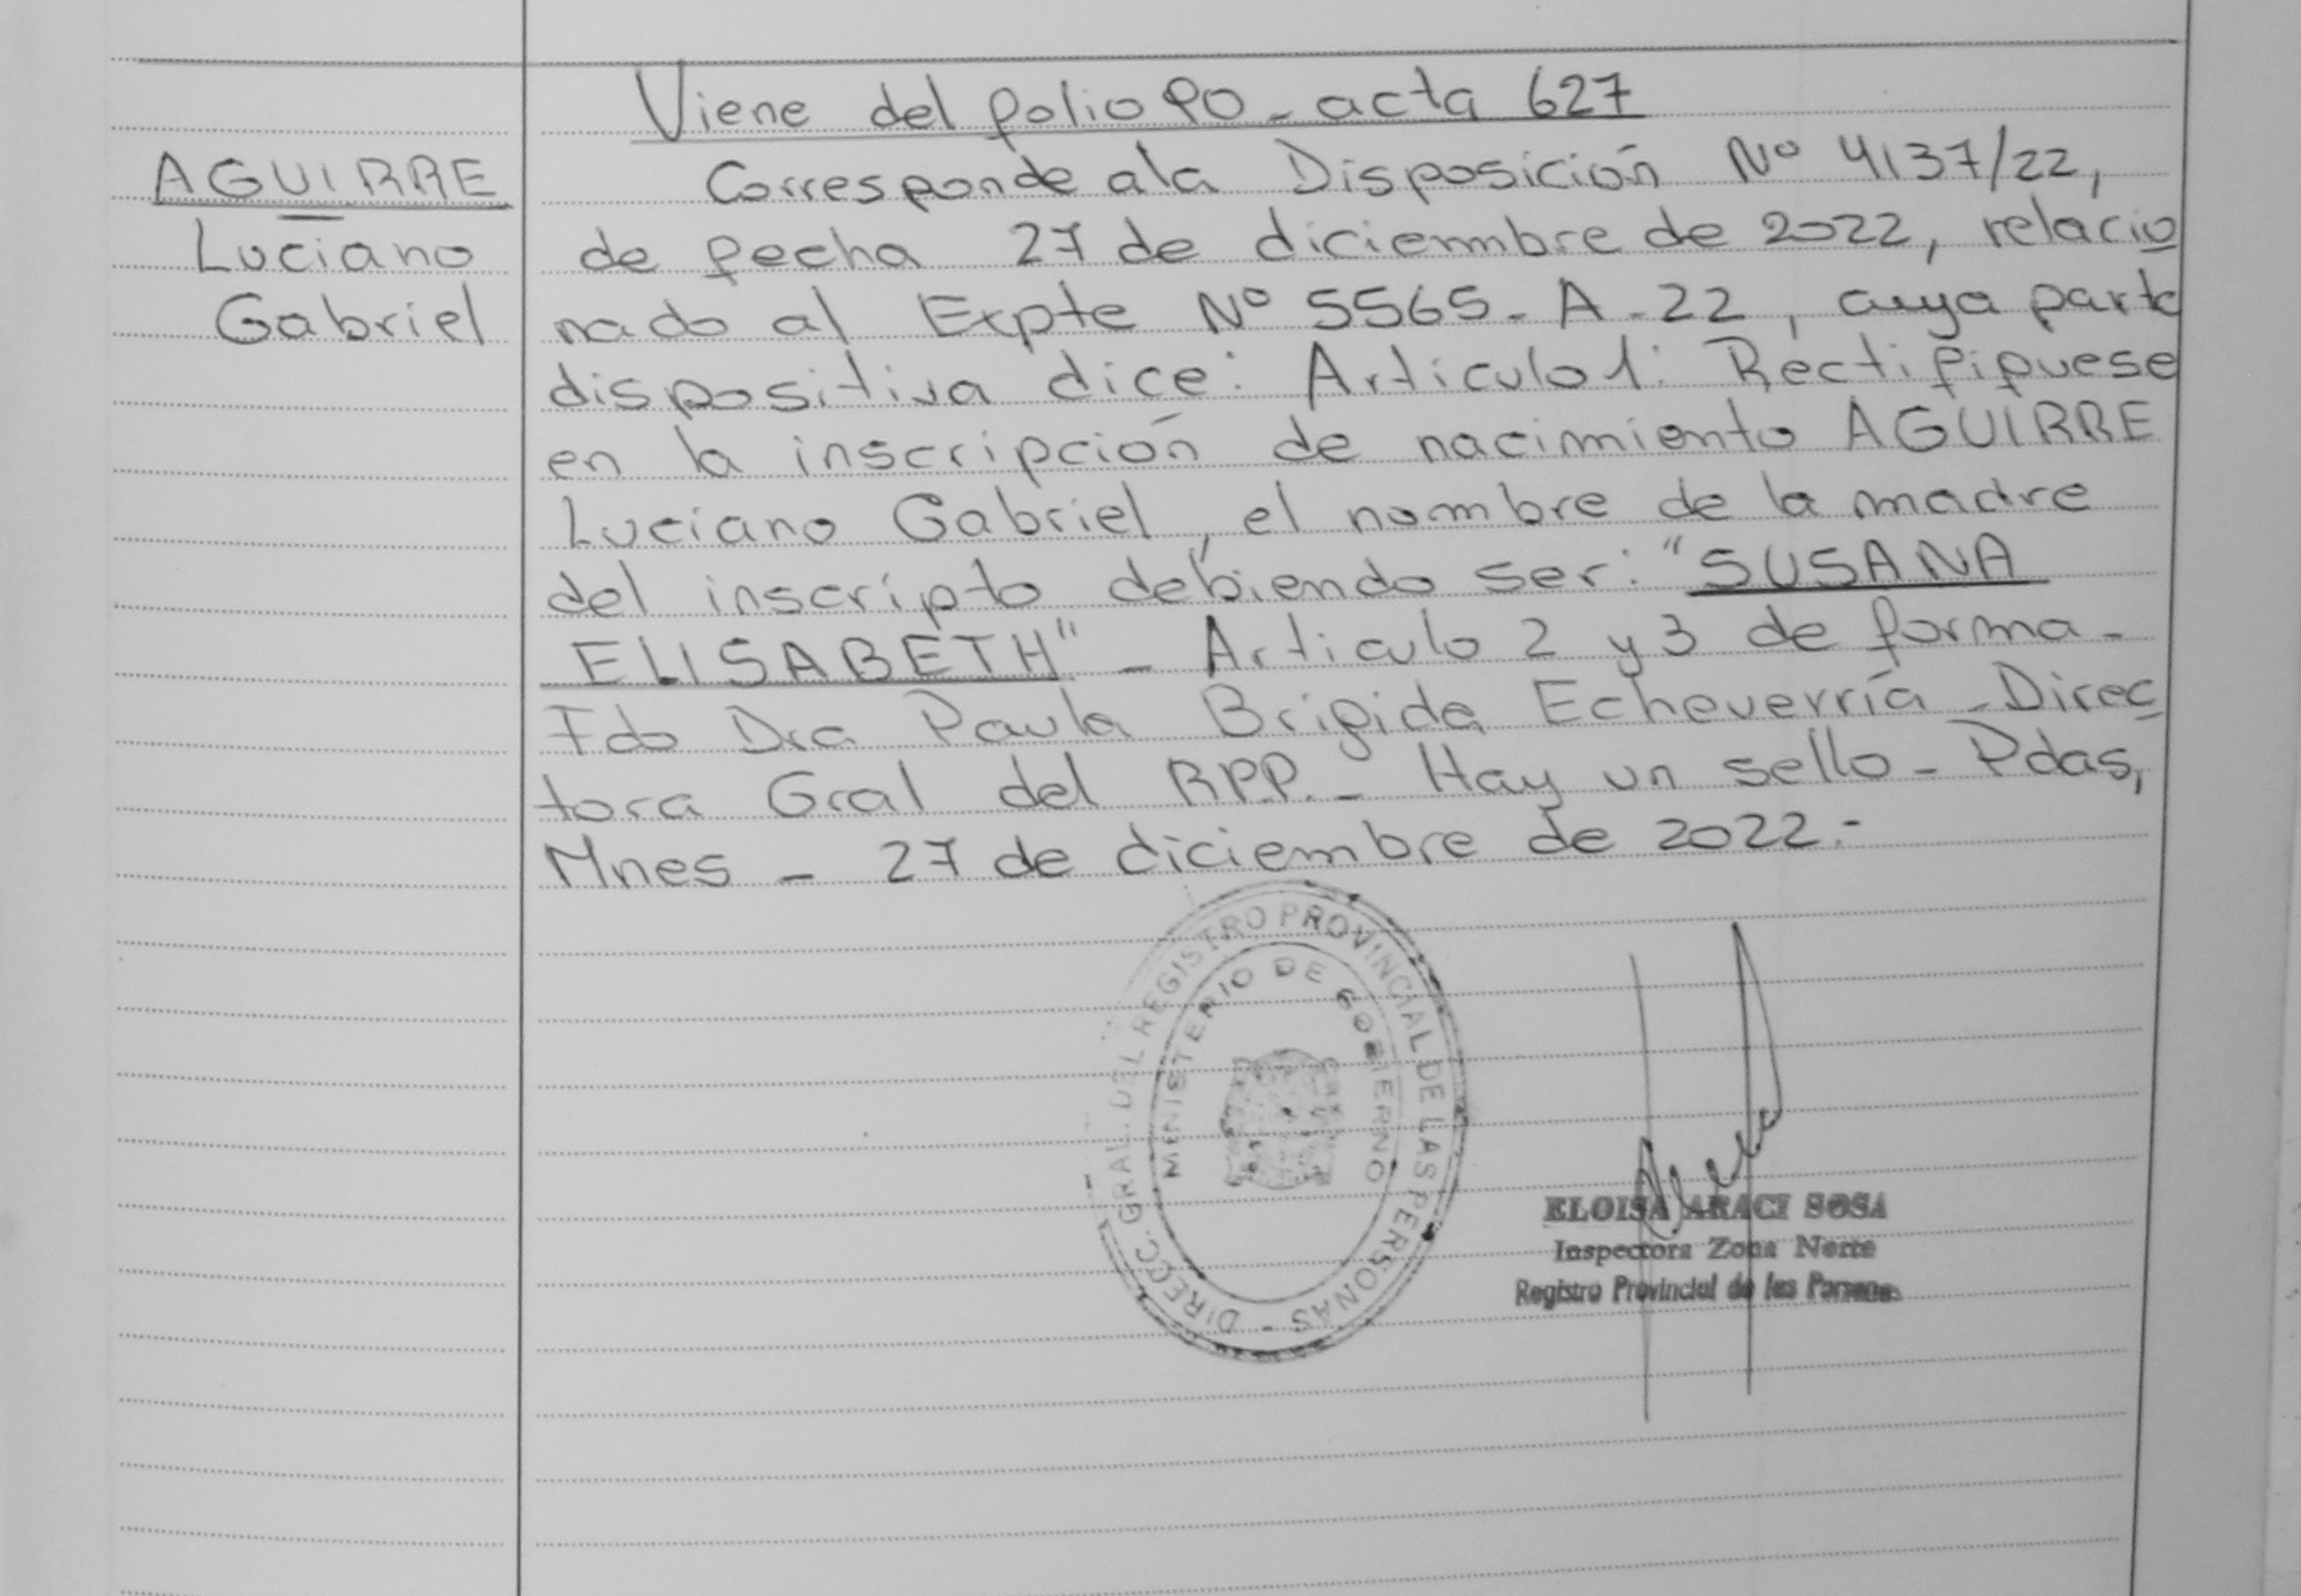 Viene del folio 90 - acta 627
AGUIRRE
Luciano
Gabriel
Corresponde a la Disposición Nº 4137/22,
de fecha 27 de diciembre de 2022, relacio
nado al Expte Nº 5565 - A - 22, cuya parte
dispositiva dice: Articulo 1: Rectifiquese
en la inscripción de nacimiento AGUIRRE
Luciano Gabriel, el nombre de la madre
del inscripto debiendo ser: "SUSANA
ELISABETH" - Articulo 2 y 3 de forma -
Fdo Dra Paula Brigida Echeverría - Direc
tora Gral del RPP. - Hay un sello - Pdas,
Mnes - 27 de diciembre de 2022.-
DIRECC. GRAL. DEL REGISTRO PROVINCIAL DE LAS PERSONAS -
MINISTERIO DE GOBIERNO
ELOISA ARACI SOSA
Inspectora Zona Norte
Registro Provincial de las Personas